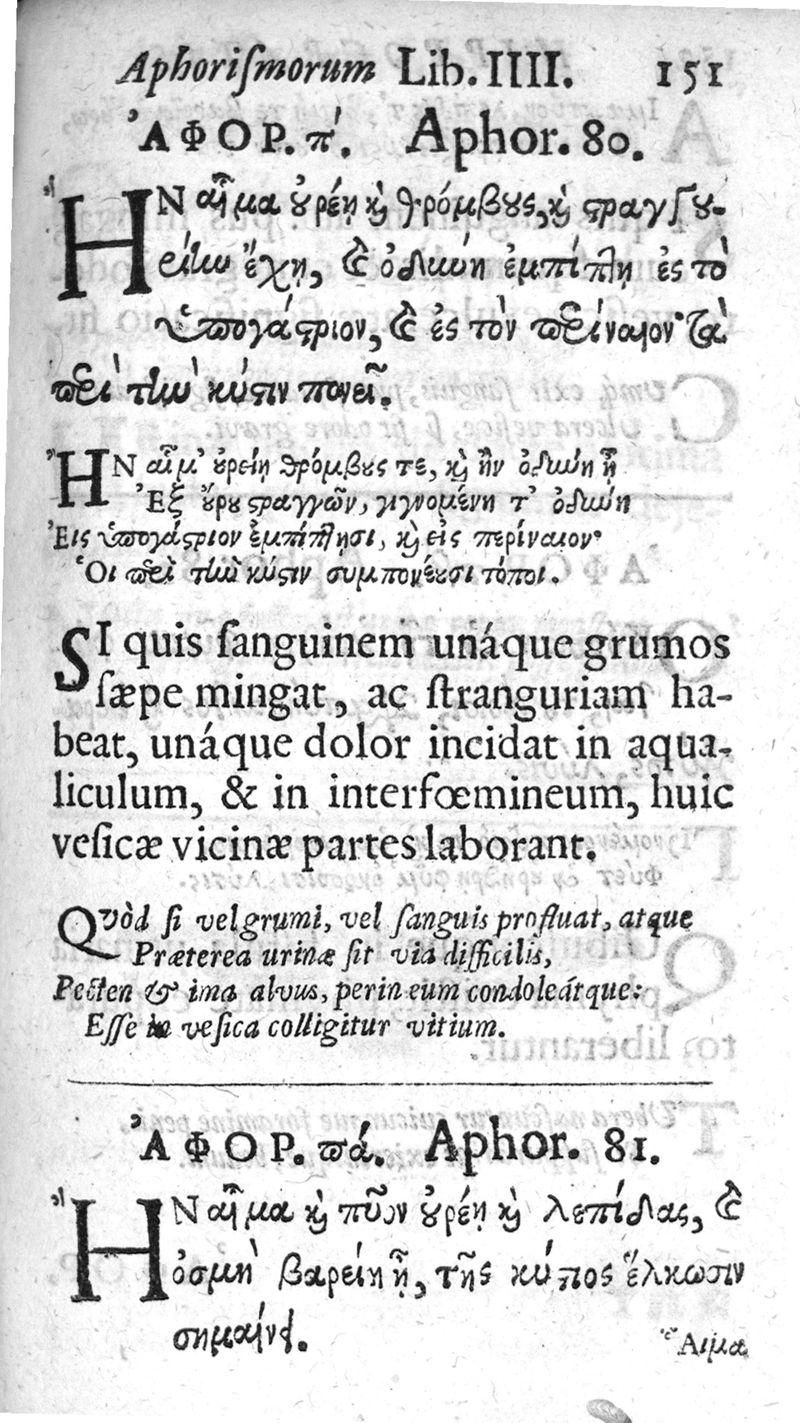 Aphoriſmorum Lib. IIII. 151
ἈΦΟΡ. π'. Aphor. 80.
ἪΝ αἷμα ȣ̓ρέῃ ϗ θρόμβȣς, ϗ ϛραγγȣ-
ρίην ἔχῃ, καὶ ὀδύνη ἐμπίπτῃ ἐς τὸ
ὑπογάϛριον, καὶ ἐς τὸν περίναιον· τὰ
περὶ τὴν κύϛιν πονεῖ.
ἪΝ αἷμ' ȣ̓ρείῃ θρόμβȣς τε, ϗ ἢν ὀδύνη ᾖ
Ἐξ ȣ̓́ρȣ ϛραγγῶν, γιγνομένη τ' ὀδύνη
Εἰς ὑπογάϛριον ἐμπίπτῃσι, ϗ εἰς περίναιον·
Οἱ περὶ τὴν κύϛιν συμπονέȣσι τόποι.
SI quis ſanguinem unáque grumos
ſæpe mingat, ac ſtranguriam ha-
beat, unáque dolor incidat in aqua-
liculum, & in interfœmineum, huic
veſicæ vicinæ partes laborant.
Quòd ſi vel grumi, vel ſanguis profluat, atque
Præterea urinæ ſit via difficilis,
Pecten & ima alvus, perineum condoleátque:
Eſſe in veſica colligitur vitium.
ἈΦΟΡ. πά. Aphor. 81.
ἪΝ αἷμα ϗ πῦον ȣ̓ρέῃ ϗ λεπίδας, καὶ
ὀσμὴ βαρείη ᾖ, τῆς κύϛιος ἕλκωσιν
σημαίνει.
Αἷμα